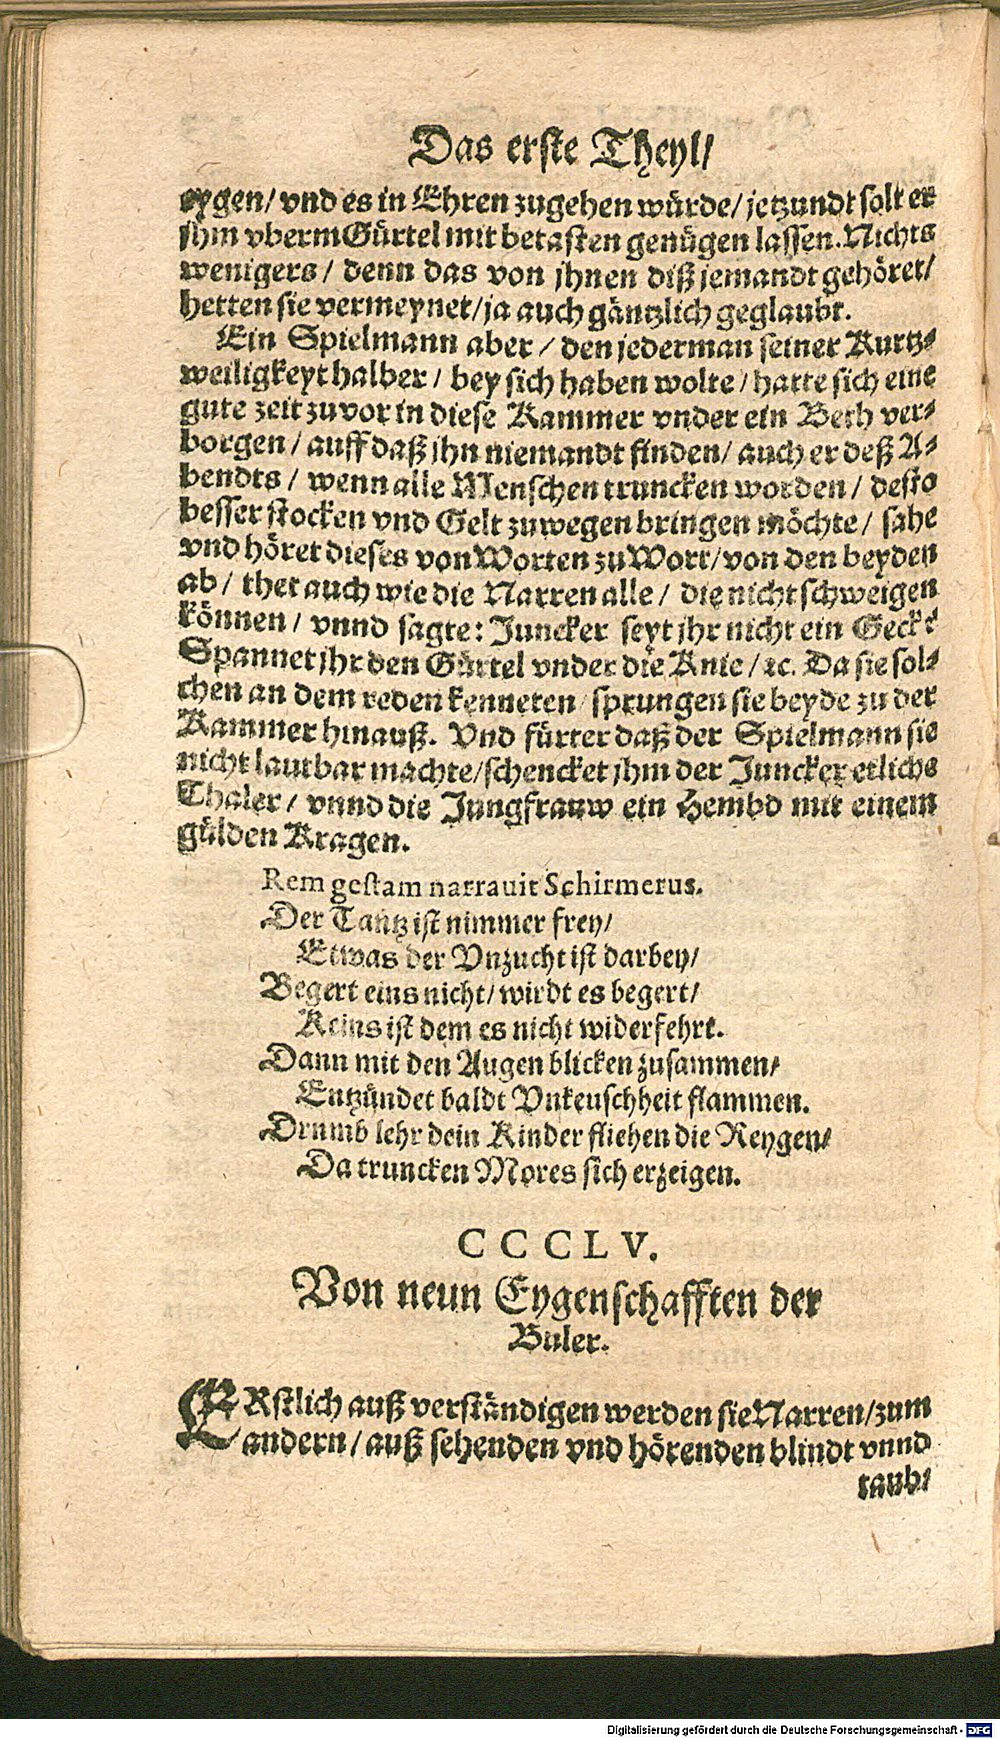 Das erste Theyl/
eygen/ vnd es in Ehren zugehen würde/ jetzundt solt er
jhm vberm Gürtel mit betasten genügen lassen. Nichts
wenigers/ denn das von jhnen diß jemandt gehöret/
hetten sie vermeynet/ ja auch gäntzlich geglaubt.
Ein Spielmann aber/ den jederman seiner Kurtz-
weiligkeyt halber/ bey sich haben wolte/ hatte sich eine
gute zeit zuvor in diese Kammer vnder ein Beth ver-
borgen/ auff daß jhn niemandt finden/ auch er deß A-
bendts/ wenn alle Menschen truncken worden/ desto
besser stocken vnd Gelt zuwegen bringen möchte/ sahe
vnd höret dieses von Worten zu Wort/ von den beyden
ab/ thet auch wie die Narren alle/ die nicht schweigen
können/ vnnd sagte: Juncker seyt jhr nicht ein Geck?
Spannet jhr den Gürtel vnder die Knie/ ꝛc. Da sie sol-
chen an dem reden kenneten/ sprungen sie beyde zu der
Kammer hinauß. Vnd fürter daß der Spielmann sie
nicht lautbar machte/ schencket jhm der Juncker etliche
Thaler/ vnnd die Jungfrauw ein Hembd mit einem
gülden Kragen.
Rem gestam narrauit Schirmerus.
Der Tantz ist nimmer frey/
Etwas der Vnzucht ist darbey/
Begert eins nicht/ wirdt es begert/
Keins ist dem es nicht widerfehrt.
Dann mit den Augen blicken zusammen/
Entzündet baldt Vnkeuschheit flammen.
Drumb lehr dein Kinder fliehen die Reygen/
Da truncken Mores sich erzeigen.
CCCLV.
Von neun Eygenschafften der
Buler.
ERstlich auß verständigen werden sie Narren/ zum
andern/ auß sehenden vnd hörenden blindt vnnd
taub/
Digitalisierung gefördert durch die Deutsche Forschungsgemeinschaft - DFG